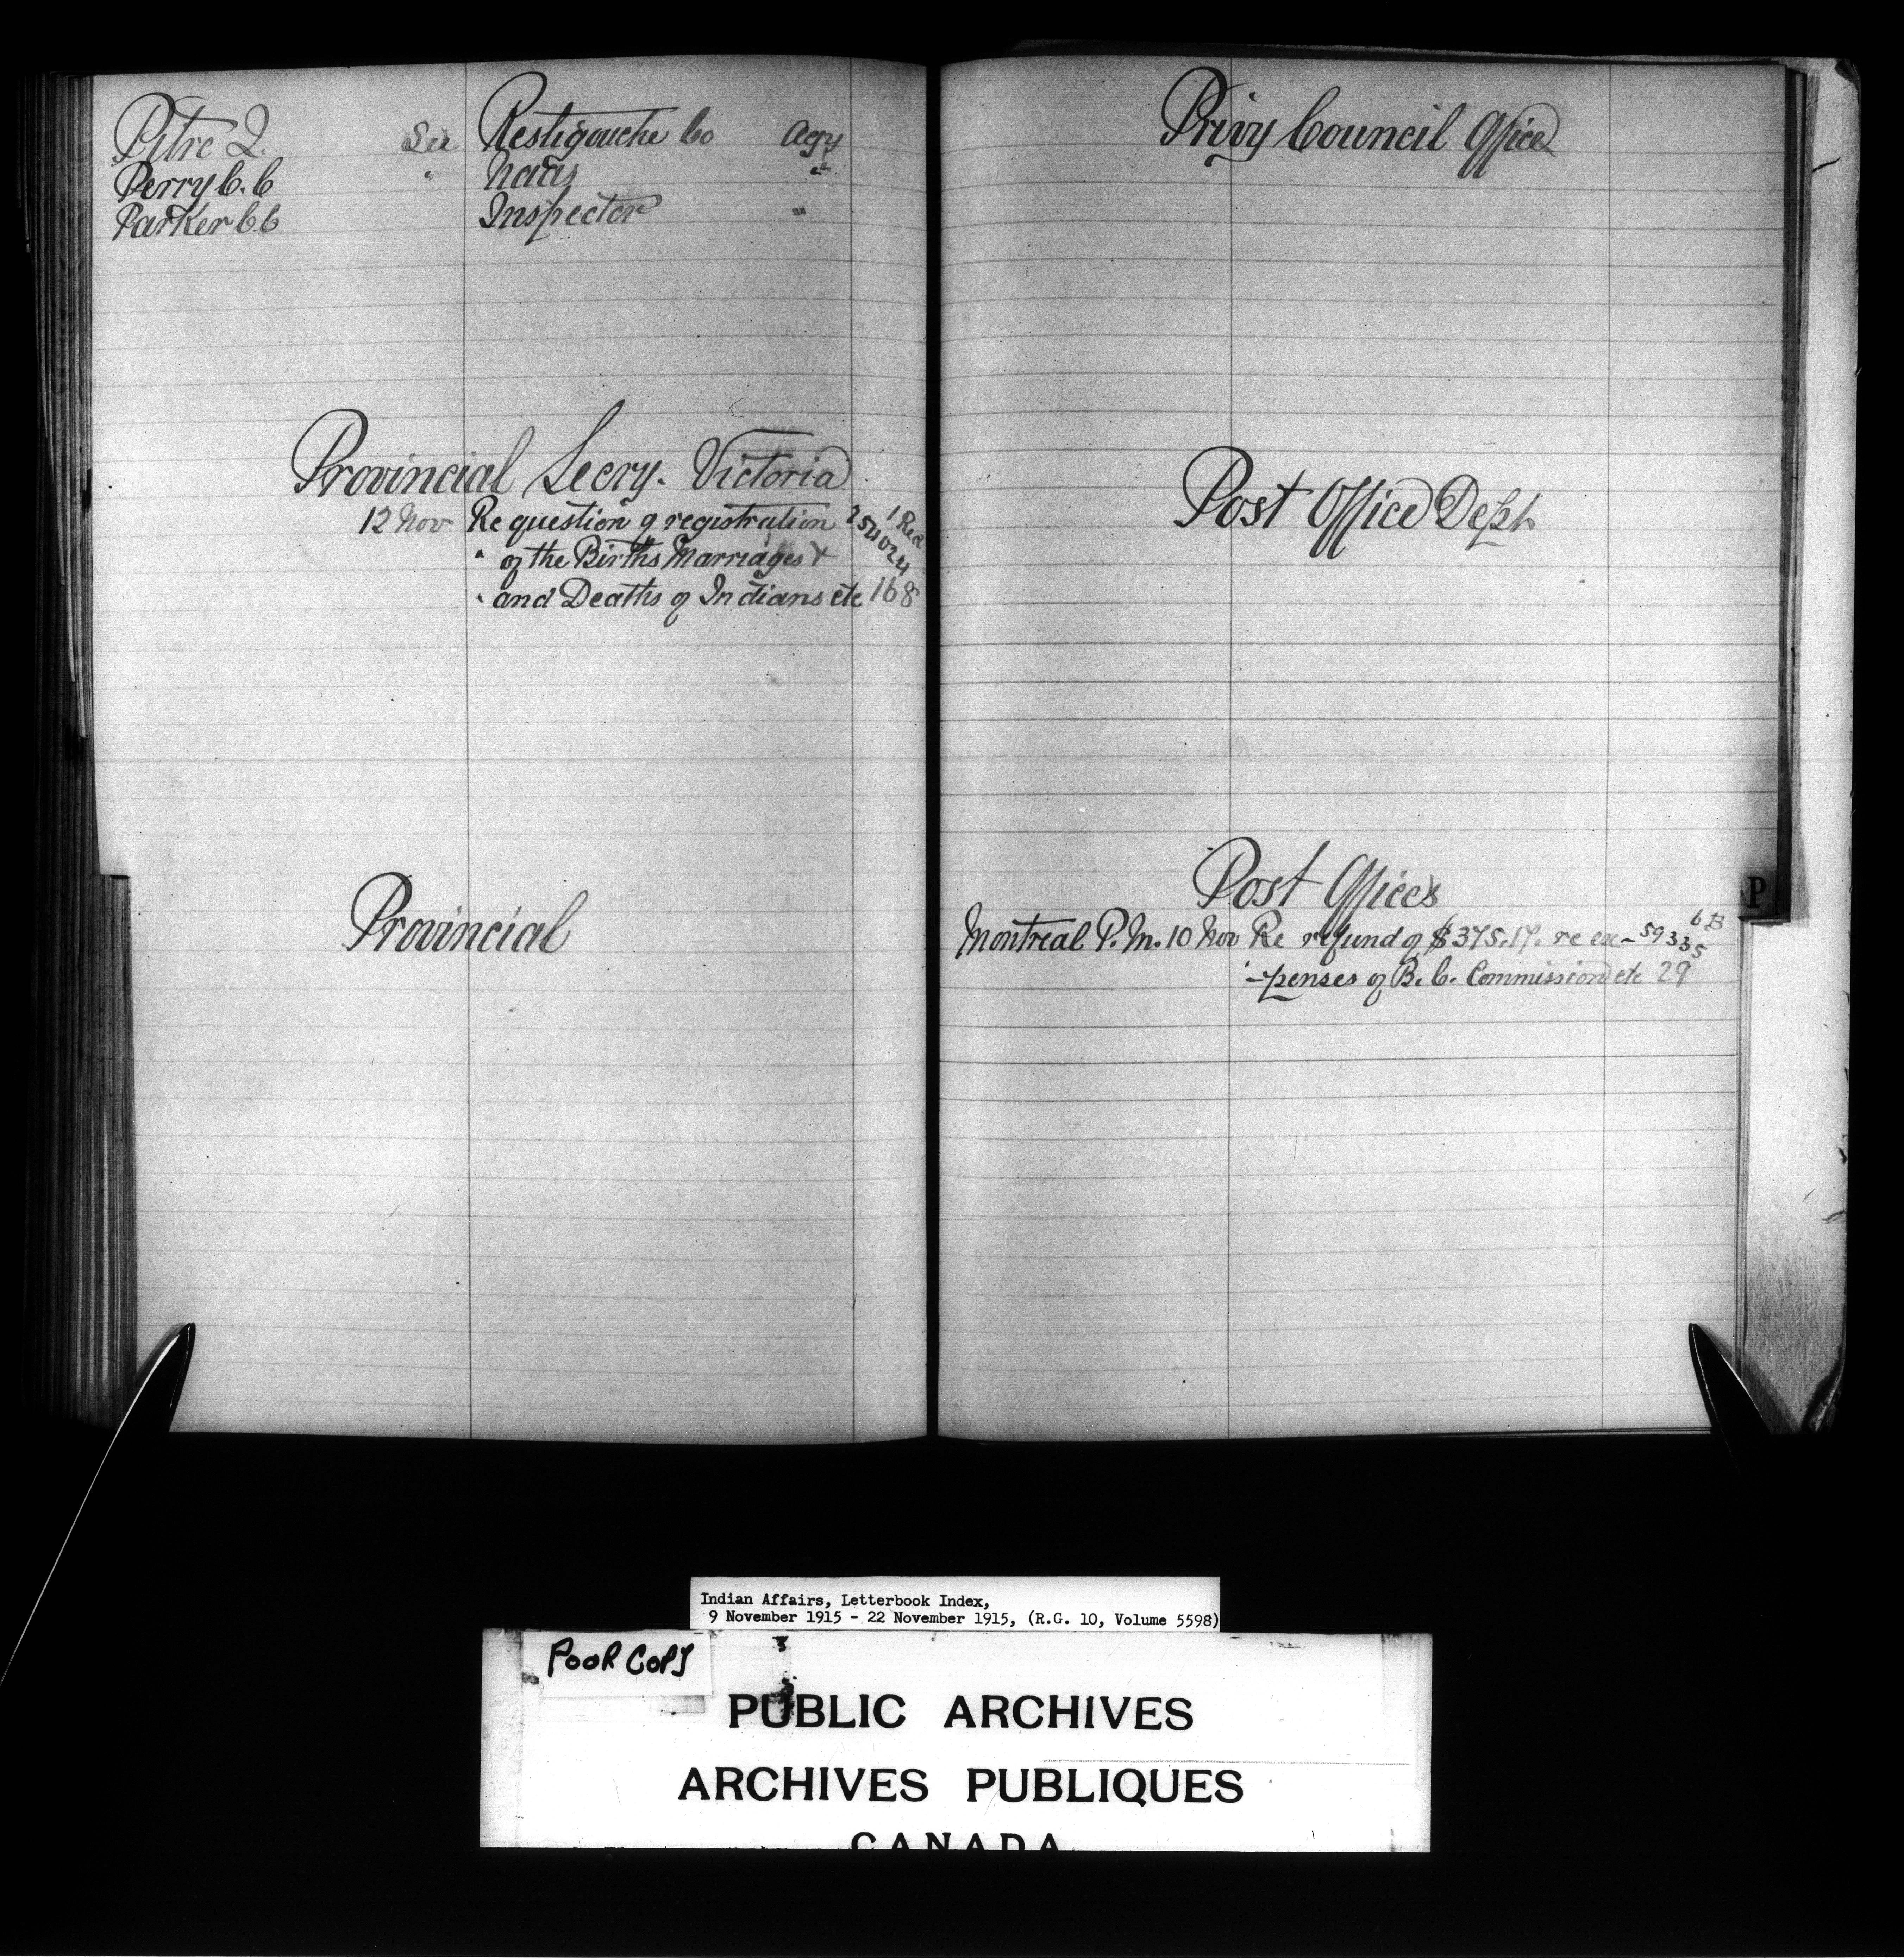 Pitre J. See Restigouche Co Agy
Perry C. C " Naas "
Parker C. C Inspector "
Provincial Secry. Victoria
12 Nov Re question of registration 254024 1 Red
" of the Births Marriages &
" and Deaths of Indians etc 168
Provincial
Privy Council Office
Post Office Dept
Post Offices
Montreal P. M. 10 Nov Re refund of $375.17. re ex- 59335 6B
" -penses of B. C. Commission etc 29
P
Indian Affairs, Letterbook Index,
9 November 1915 - 22 November 1915, (R.G. 10, Volume 5598)
POOR COPY
PUBLIC ARCHIVES
ARCHIVES PUBLIQUES
CANADA